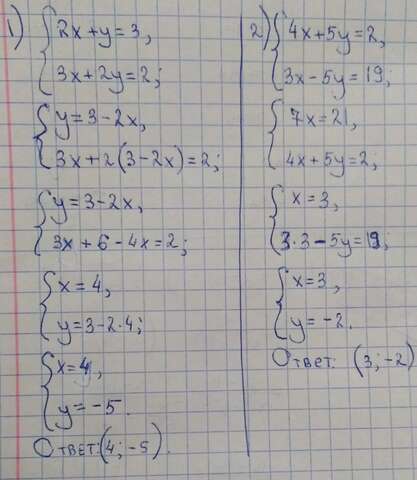 1) 2x+y=3,
3x+2y=2;
y=3-2x,
3x+2(3-2x)=2;
y=3-2x,
3x+6-4x=2;
x=4,
y=3-2·4;
x=4,
y=-5.
Ответ:(4;-5).
2) 4x+5y=2,
3x-5y=19;
7x=21,
4x+5y=2;
x=3,
3·3-5y=19;
x=3,
y=-2.
Ответ: (3;-2)